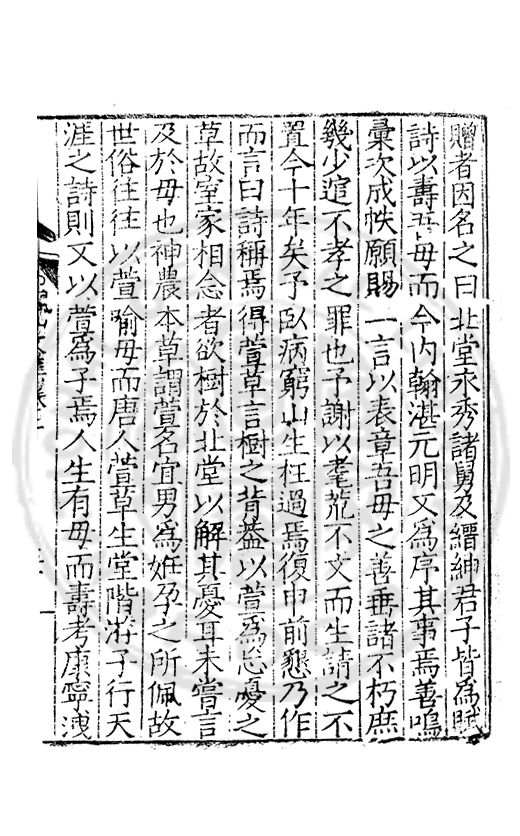 贈者因名之曰北堂永秀諸舅及縉紳君子皆為賦
詩以壽吾母而今内翰湛元明又為序其事焉善鳴
彙次成帙願賜一言以表章吾母之善垂諸不朽庶
幾少逭不孝之罪也予謝以耄荒不文而生請之不
置今十年矣予臥病窮山生枉過焉復申前懇乃作
而言曰詩稱焉得萱草言樹之背葢以萱為忘憂之
草故室家相念者欲樹於北堂以解其憂耳未嘗言
及於母也神農本草謂萱名宜男為姙孕之所佩故
世俗往往以萱喻母而唐人萱草生堂階游子行天
涯之詩則又以萱為子焉人生有母而壽考康寧浅